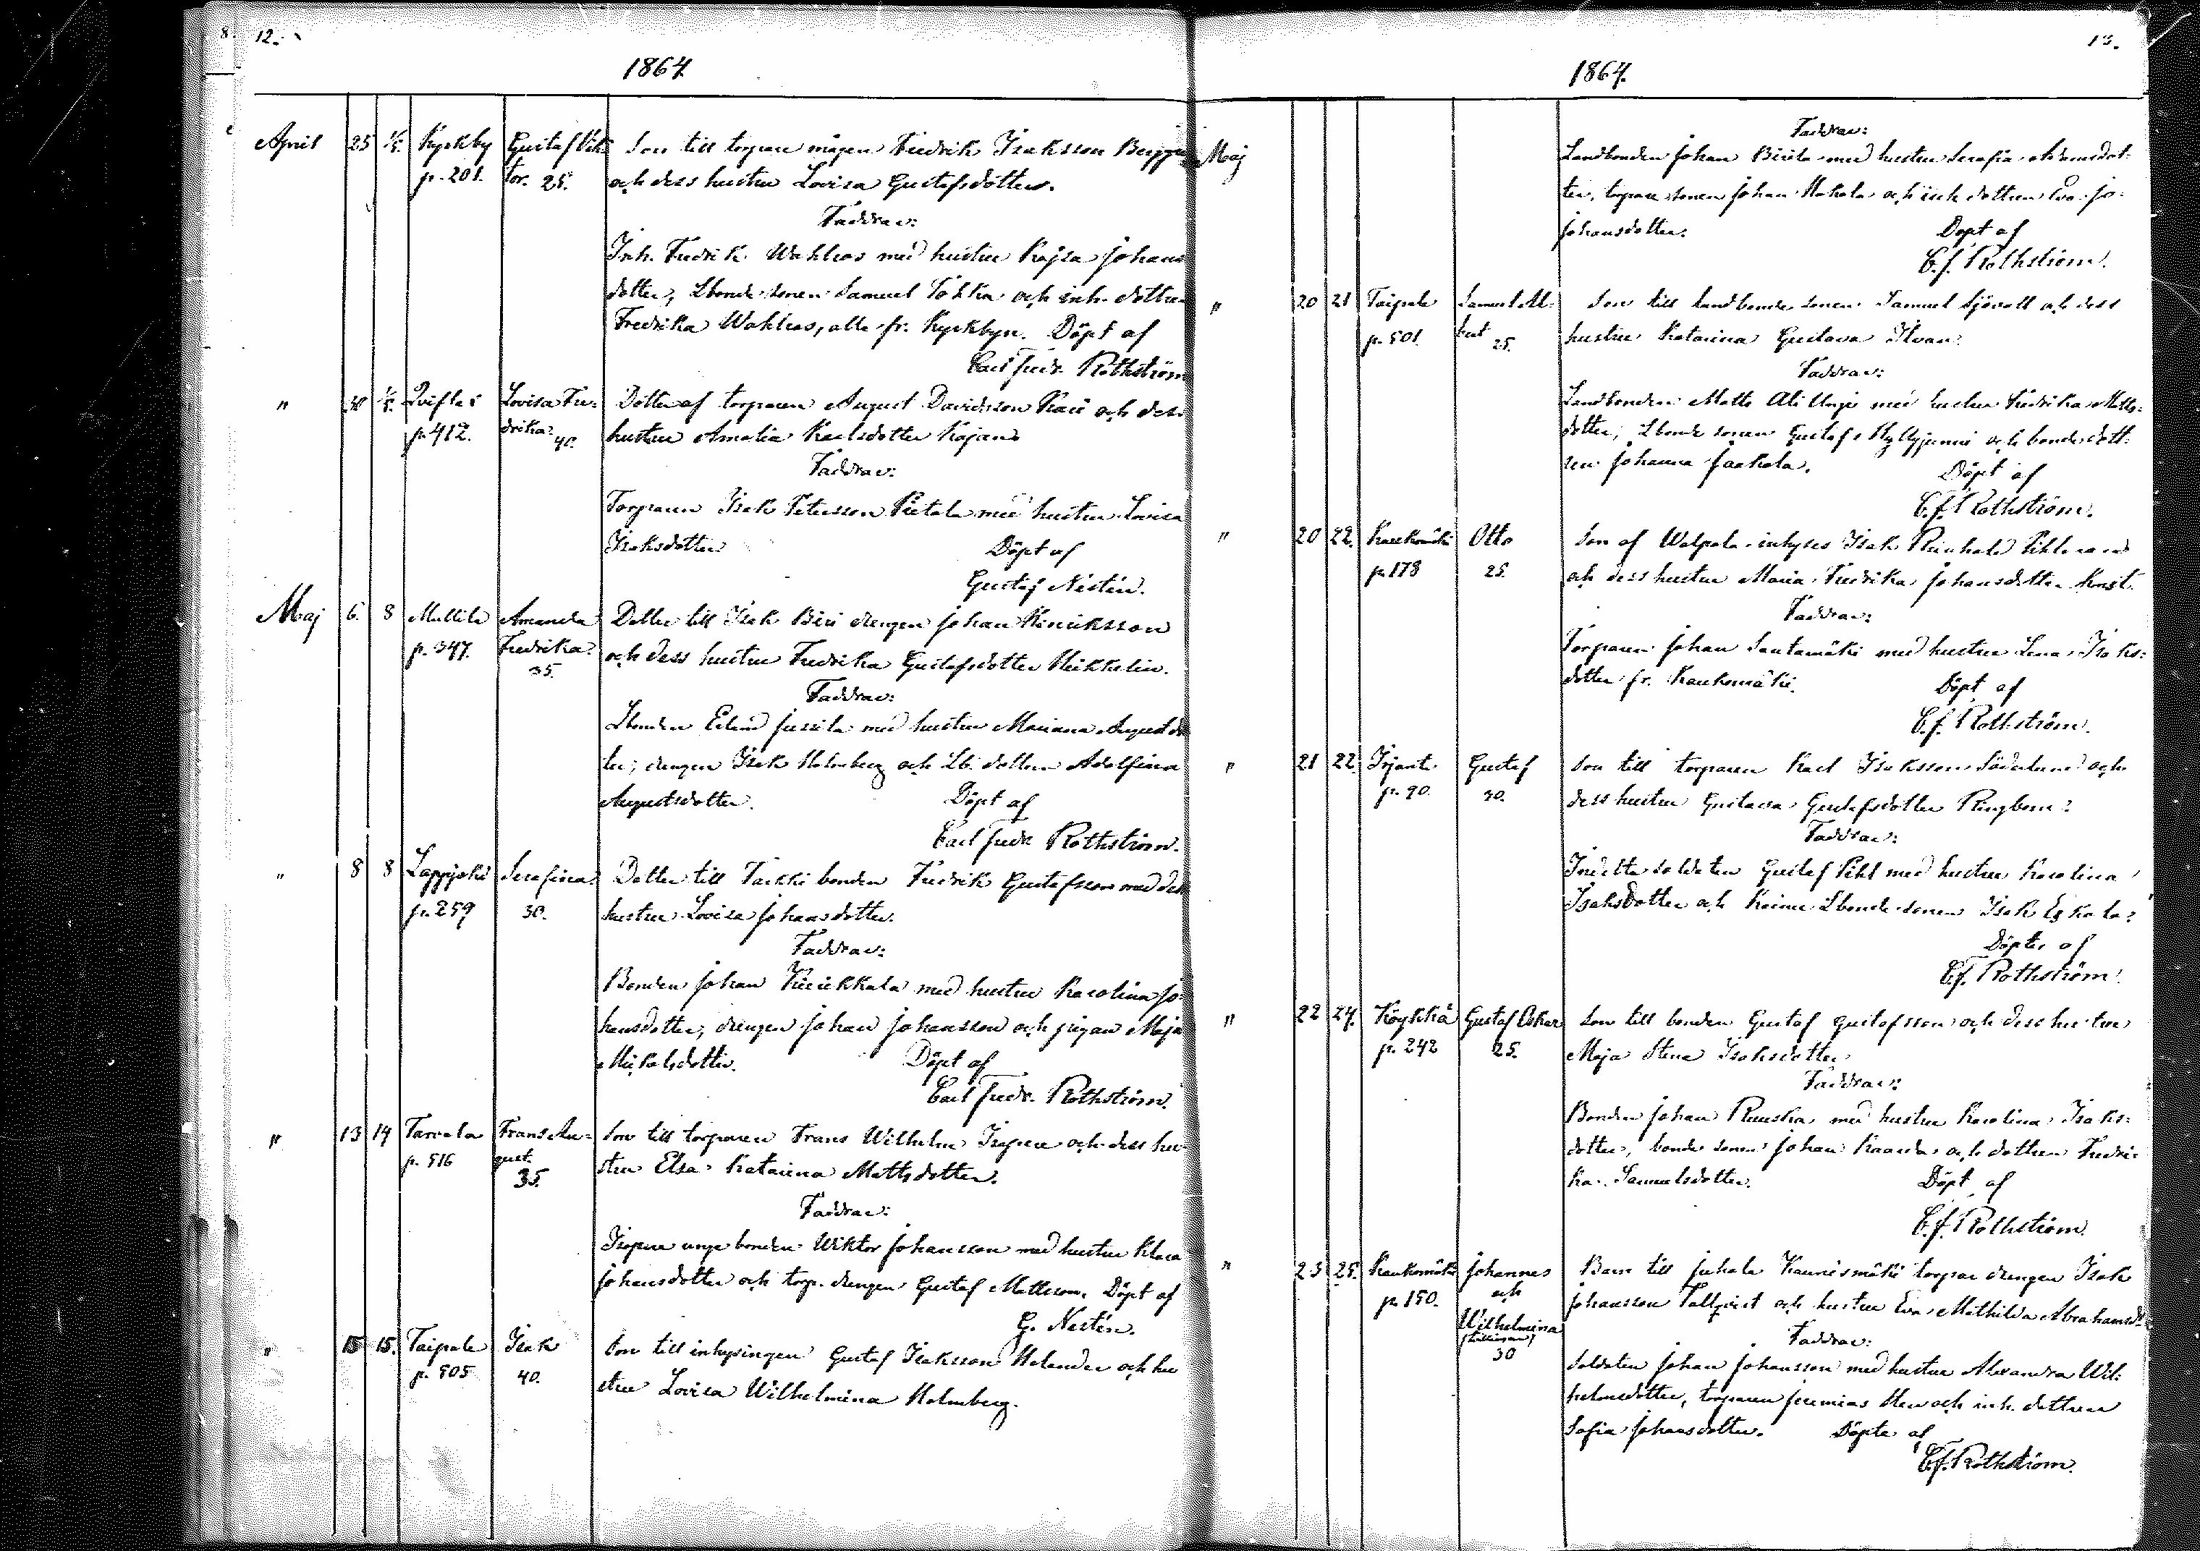 12.
1864
April 25 1/5 Kyrkby Gustaf Vik- Son till torpare mågen Fredrik Isaksson Berggren
p. 201. tor. 25. och dess hustru Lovisa Gustafsdotter.
Faddrar:
Inh. Fredrik Wahlros med hustru Kajsa Johans
dotter, Lbonde sonen Samuel Tokka och inh. dottren
Fredrika Wahlros, alla fr. Kyrkbyn. Döpt af
Carl Fredr. Rothström
" 30 1/5 Lovisa Fre- Dotter af torparen August Davidsson och dess
p. 412. drika 40. hustru Amalia Karlsdotter Kajan
Faddrar:
Torparen Isak Petersson Pietola med hustru Lovisa
Isaksdotter Döpt af
Gustaf Nestén.
Maj 6. 8 Mullila Amanda Dotter till Isak Biri drengen Johan Henriksson
p. 347. Fredrika och dess hustru Fredrika Gustafsdotter Mikkelin.
35.
Faddrar:
Lbonden Edvard Jussila med hustru Mariana August dot
ter; drengen Isak Holmberg och Lb. dottren Adolfina
Augustsdotter. Döpt af
Carl Fredr. Rothström.
" 8 8 Lappijoki Serafina Dotter till Takki bonden Fredrik Gustafsson med dess
p. 259 30. hustru Lovisa Johansdotter.
Faddrar:
Bonden Johan Kirikkala med hustru Karolina Jo-
hansdotter, drengen Johan Johansson och pigan Maja
Mikalsdotter. Döpt af
Carl Fredr. Rothström.
" 13 14 Tarvola Frans Au- Son till torparen Frans Wilhelm Isopere och dess hu-
p. 516 gust. stru Elsa Katarina Mattsdotter.
35.
Faddrar:
Isopere unge bonden Wiktor Johansson med hustru Klara
Johansdotter och torp. drengen Gustaf Mattsson. Döpt af
G. Nestén.
" 15 15. Taipale Isak Son till inhysingen Gustaf Isaksson Helander och hu
p. 505 40. stru Lovisa Wilhelmina Holmberg.
13.
1864.
Maj Faddrar:
Landbonden Johan Birila med hustru Serafia Adamsdot-
ter, torpare sonen Johan Mokola och inh dottren Eva Jo-
johansdotter. Döpt af
C. f. Rothström.
" 20 21 Taipale Samuel Al- Son till landbonde sonen Samuel Sjövall och dess
p. 501. bert 25. hustru Katarina Gustava Ilvan.
Faddrar:
Landbonden Matts Ali Unji med hustru Fredrika Matts-
dotter, Lbonde sonen Gustaf Myllyjunni och bonde dott-
ren Johanna Jaakola. Döpt af
C. f. Rothström.
" 20 22. Kaukomäki Otto Son af Walpola inhyses Isak Reinhold
p. 178 25. och dess hustru Maria Fredrika Johansdotter
Faddrar:
Torparen Johan Santamäki med hustru Lena Isaks-
dotter fr. Kaukomäki. Döpt af
C. f. Rothström.
" 21 22 Irjanti Gustaf Son till torparen Karl Isaksson Söderlund och
p. 90. 30. dess hustru Gustava Gustafsdotter Ringbom.
Faddrar:
Indelta soldaten Gustaf Pihl med hustru Karolina
Isaksdotter och Lbonde sonen Isak Eskola.
Döpter af
C. f. Rothström.
" 22 24. Köykkä Gustaf Oskar Son till bonden Gustaf Gustafsson och dess hustru
p. 242 25. Maja Stina Isaksdotter
Faddrar:
Bonden Johan Ruuska med hustru Karolina Isaks-
dotter, bonde sonen Johan Kaarda och dottren Fredri-
ka Samuelsdotter. Döpt af
C. f. Rothström.
" 23 25. Kaukomäki Johannes Barn till Juhola Kaunismäki torpar drengen Isak
p. 150. och Johansson Tallqvist och hustru Eva Mathilda Abrahamsd
Wilhelmina Faddrar:
(tvillingar)
30 Soldaten Johan Johansson med hustru Alexandra Wil-
helmsdotter, torparen Jeremias Sten och inh. dottren
Sofia Johansdotter. Döpta af
C. f. Rothström.